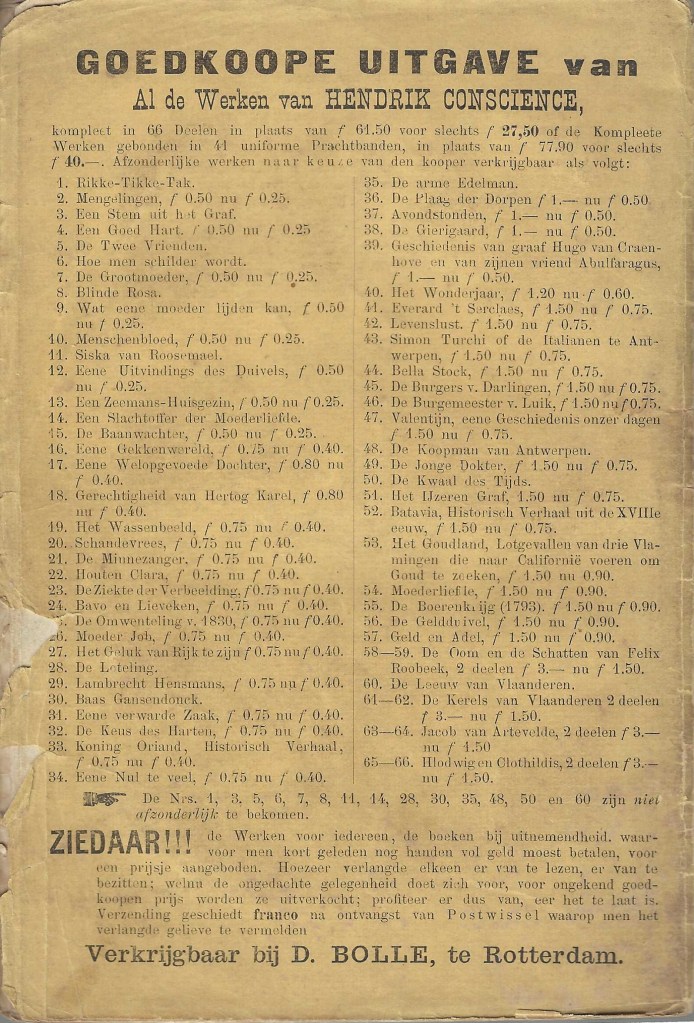 GOEDKOOPE UITGAVE van
Al de Werken van HENDRIK CONSCIENCE,
kompleet in 66 Deelen in plaats van f 61.50 voor slechts f 27,50 of de Kompleete
Werken gebonden in 41 uniforme Prachtbanden, in plaats van f 77.90 voor slechts
f 40.—. Afzonderlijke werken naar keuze van den kooper verkrijgbaar als volgt:
1. Rikke-Tikke-Tak.
2. Mengelingen, f 0.50 nu f 0.25.
3. Een Stem uit het Graf.
4. Een Goed Hart. f 0.50 nu f 0.25
5. De Twee Vrienden.
6. Hoe men schilder wordt.
7. De Grootmoeder, f 0.50 nu f 0.25.
8. Blinde Rosa.
9. Wat eene moeder lijden kan, f 0.50
nu f 0.25.
10. Menschenbloed, f 0.50 nu f 0.25.
11. Siska van Roosemael.
12. Eene Uitvindings des Duivels, f 0.50
nu f 0.25.
13. Een Zeemans-Huisgezin, f 0.50 nu f 0.25.
14. Een Slachtoffer der Moederliefde.
15. De Baanwachter, f 0.50 nu f 0.25.
16. Eene Gekkenwereld, f 0.75 nu f 0.40.
17. Eene Welopgevoede Dochter, f 0.80 nu
f 0.40.
18. Gerechtigheid van Hertog Karel, f 0.80
nu f 0.40.
19. Het Wassenbeeld, f 0.75 nu f 0.40.
20. Schandevrees, f 0.75 nu f 0.40.
21. De Minnezanger, f 0.75 nu f 0.40.
22. Houten Clara, f 0.75 nu f 0.40.
23. De Ziekte der Verbeelding, f 0.75 nu f 0.40.
24. Bavo en Lieveken, f 0.75 nu f 0.40.
5. De Omwenteling v. 1830, f 0.75 nu f 0.40.
26. Moeder Job, f 0.75 nu f 0.40.
27. Het Geluk van Rijk te zijn f 0.75 nu f 0.40.
28. De Loteling.
29. Lambrecht Hensmans, f 0.75 nu f 0.40.
30. Baas Gansendonck.
31. Eene verwarde Zaak, f 0.75 nu f 0.40.
32. De Keus des Harten, f 0.75 nu f 0.40.
33. Koning Oriand, Historisch Verhaal,
f 0.75 nu f 0.40.
34. Eene Nul te veel, f 0.75 nu f 0.40.
35. De arme Edelman.
36. De Plaag der Dorpen f 1.— nu f 0.50
37. Avondstonden, f 1.— nu f 0.50.
38. De Gierigaard, f 1.— nu f 0.50.
39. Geschiedenis van graaf Hugo van Craen-
hove en van zijnen vriend Abulfaragus,
f 1.— nu f 0.50.
40. Het Wonderjaar, f 1.20 nu f 0.60.
41. Everard 't Serclaes, f 1.50 nu f 0.75.
42. Levenslust. f 1.50 nu f 0.75.
43. Simon Turchi of de Italianen te Ant-
werpen, f 1.50 nu f 0.75.
44. Bella Stock, f 1.50 nu f 0.75.
45. De Burgers v. Darlingen, f 1.50 nu f 0.75.
46. De Burgemeester v. Luik, f 1.50 nu f 0.75.
47. Valentijn, eene Geschiedenis onzer dagen
f 1.50 nu f 0.75.
48. De Koopman van Antwerpen.
49. De Jonge Dokter, f 1.50 nu f 0.75.
50. De Kwaal des Tijds.
51. Het IJzeren Graf, 1.50 nu f 0.75.
52. Batavia, Historisch Verhaal uit de XVIIIe
eeuw, f 1.50 nu f 0.75.
53. Het Goudland, Lotgevallen van drie Vla-
mingen die naar Californië voeren om
Goud te zoeken, f 1.50 nu 0.90.
54. Moederliefde, f 1.50 nu f 0.90.
55. De Boerenkrijg (1793). f 1.50 nu f 0.90.
56. De Gelddivel, f 1.50 nu f 0.90.
57. Geld en Adel, f 1.50 nu f 0.90.
58—59. De Oom en de Schatten van Felix
Roobeek, 2 deelen f 3.— nu f 1.50.
60. De Leeuw van Vlaanderen.
61—62. De Kerels van Vlaanderen 2 deelen
f 3.— nu f 1.50.
63—64. Jacob van Artevelde, 2 deelen f 3.—
nu f 1.50
65—66. Hlodwig en Clothildis, 2 deelen f 3.—
nu f 1.50.
De Nrs. 1, 3, 5, 6, 7, 8, 11, 14, 28, 30, 35, 48, 50 en 60 zijn niet
afzonderlijk te bekomen.
ZIEDAAR!!! de Werken voor iedereen, de boeken bij uitnemendheid. waar-
voor men kort geleden nog handen vol geld moest betalen, voor
een prijsje aangeboden. Hoezeer verlangde elkeen er van te lezen, er van te
bezitten; welnu de ongedachte gelegenheid doet zich voor, voor ongekend goed-
koopen prijs worden ze uitverkocht; profiteer er dus van, eer het te laat is.
Verzending geschiedt franco na ontvangst van Postwissel waarop men het
verlangde gelieve te vermelden
Verkrijgbaar bij D. BOLLE, te Rotterdam.